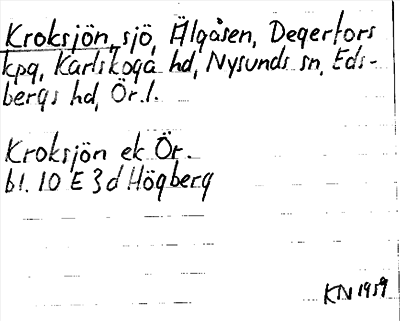 Kroksjön, sjö, Älgåsen, Degerfors
kpg, Karlskoga hd, Nysunds sn, Eds-
bergs hd, Ör. l.
Kroksjön ek Ör.
bl. 10 E 3 d Högberg
KN 1959